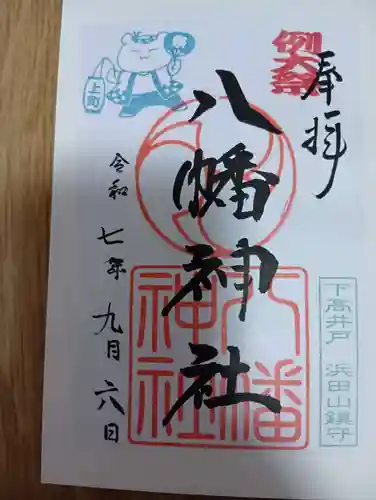 奉拝
例大祭
下高井戸 浜田山鎮守
八幡神社
八幡
神社
上町
令和七年九月六日